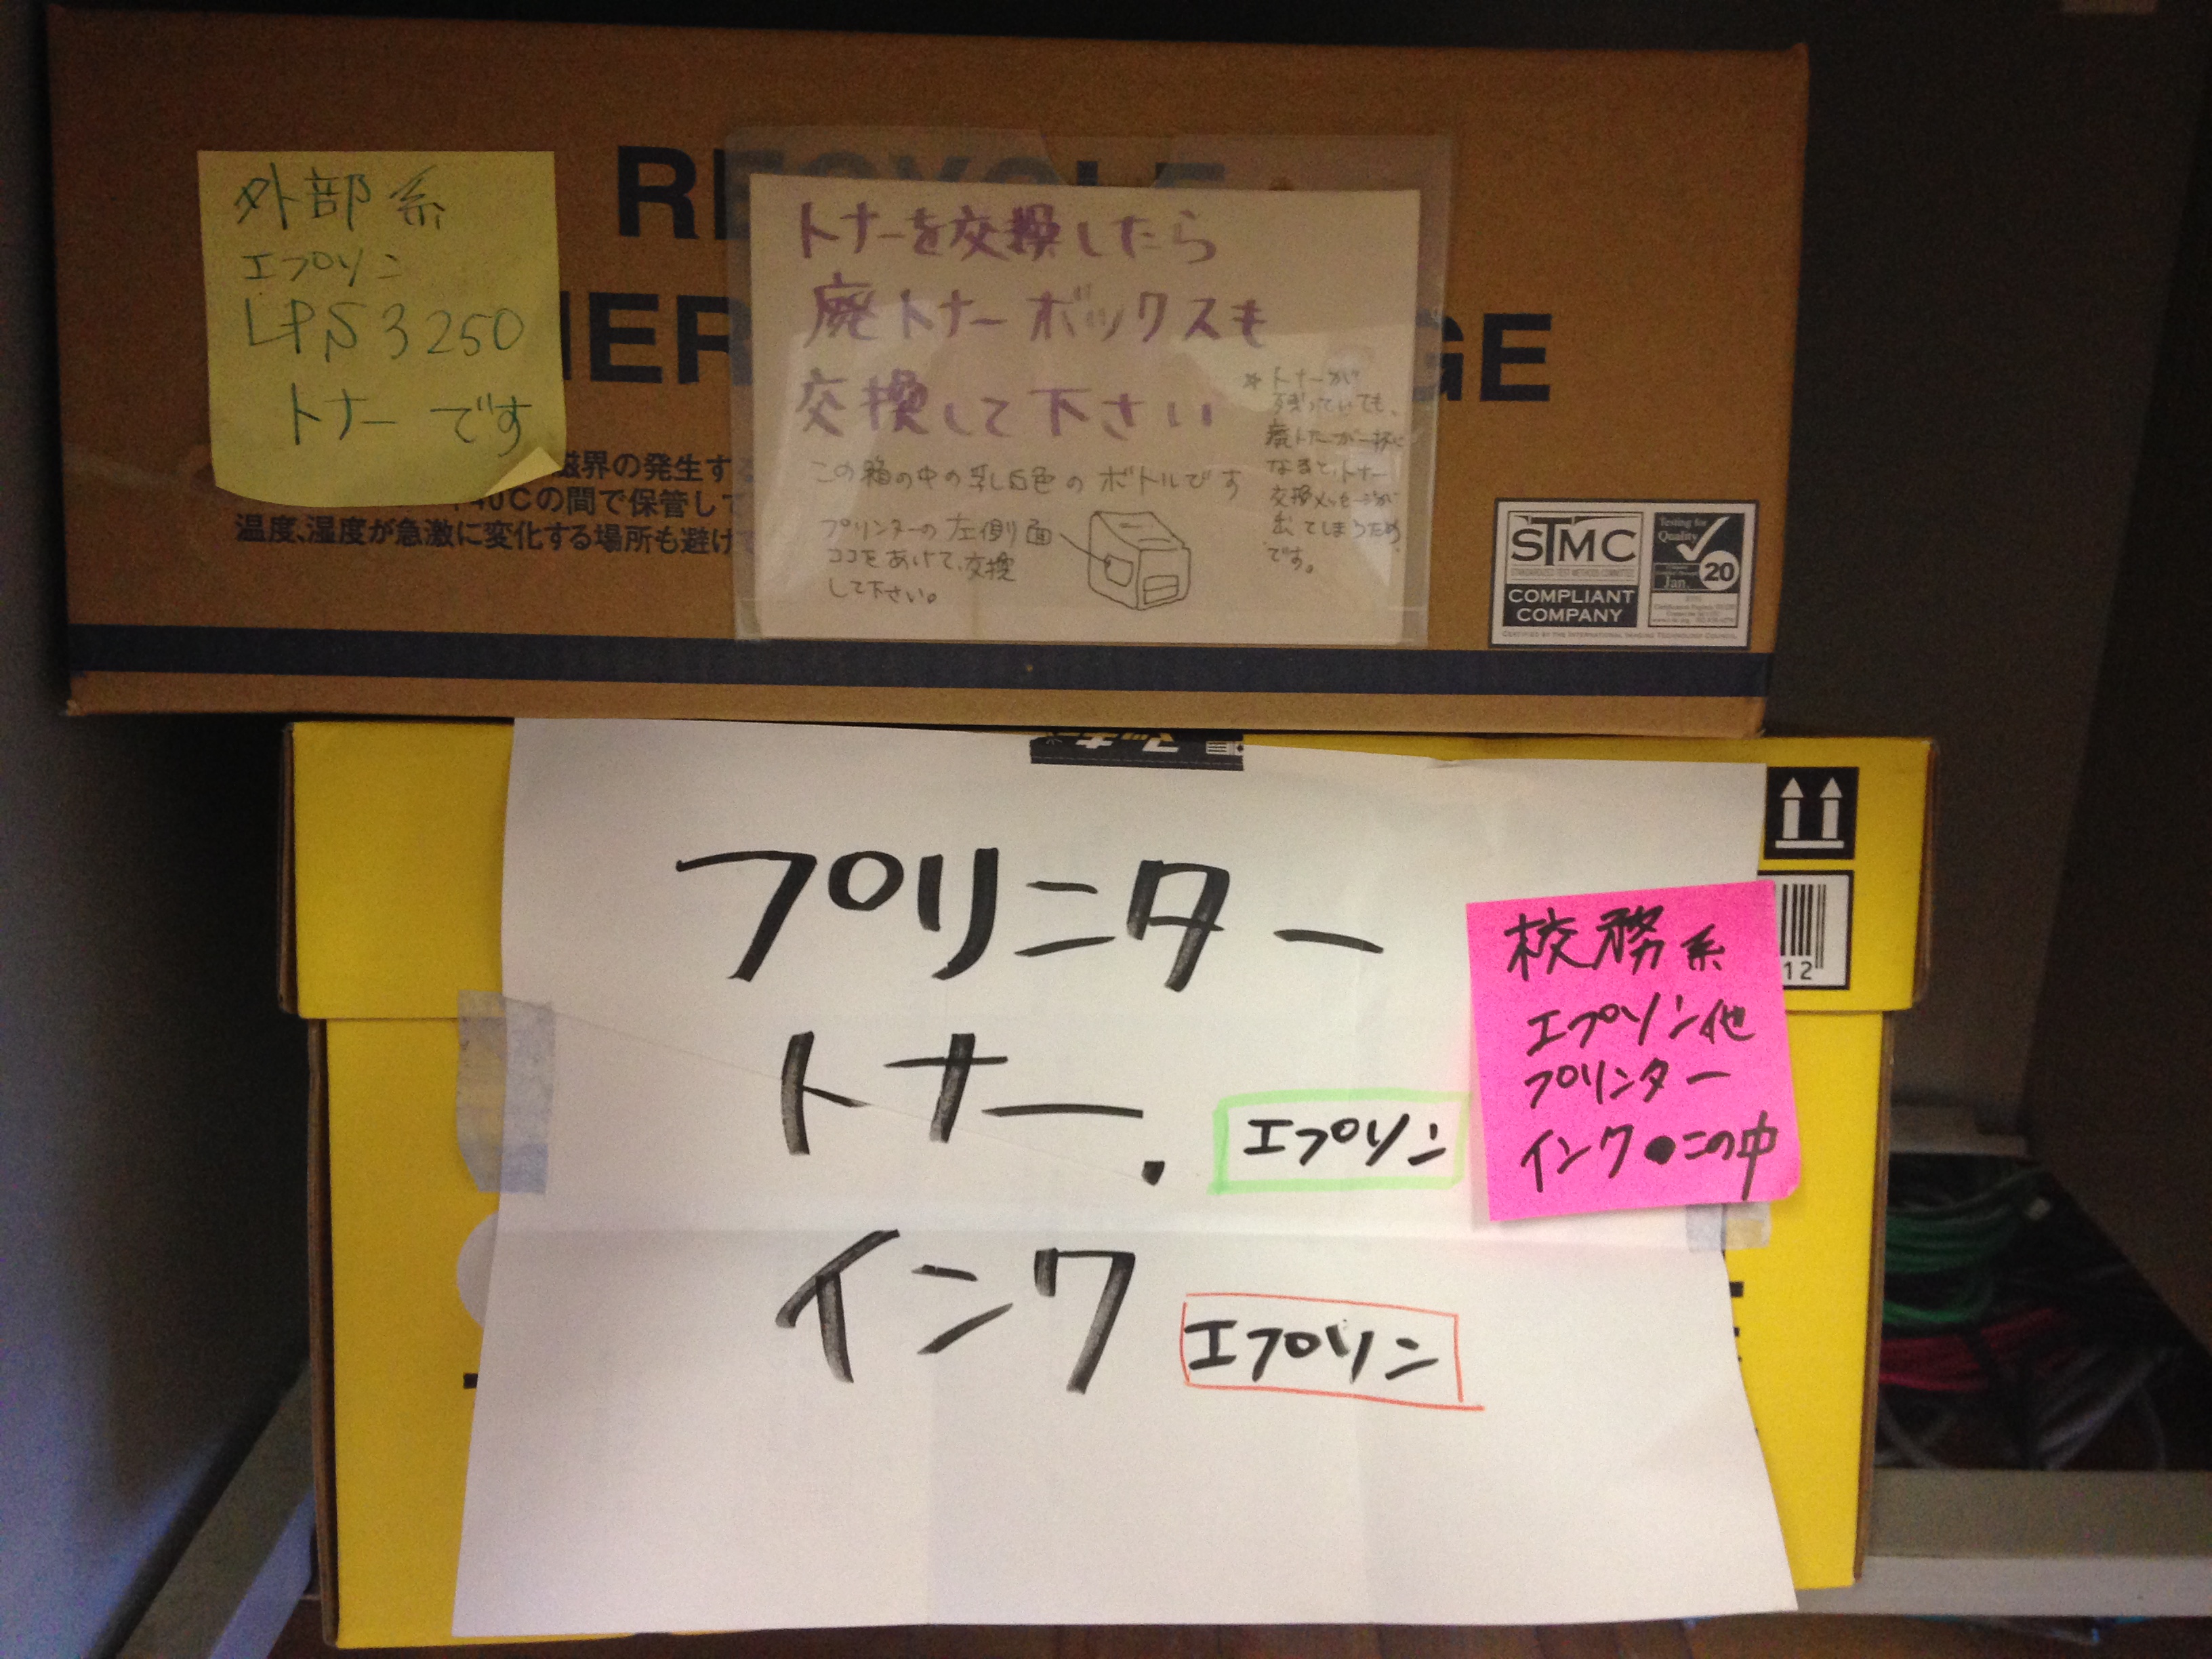 RECYCLE
外部系
エプソン
LPS3250
トナーです
トナーを交換したら
廃トナーボックスも
交換して下さい
この箱の中の乳白色のボトルです
プリンターの左側面
ココをあけて、交換
して下さい。
*トナーが
残っていても、
廃トナーが一杯に
なると、トナー
交換メッセージが
出てしまうため
です。
NER
GE
磁界の発生す
40℃の間で保管して
温度、湿度が急激に変化する場所も避け
STMC
STANDARDIZED TEST METHODS COMMITTEE
COMPLIANT
COMPANY
Testing for
Quality
Jan. 20
CERTIFIED BY THE INTERNATIONAL IMAGING TECHNOLOGY COUNCIL
プリンター
トナー.
エプソン
インク
エプソン
校務系
エプソン他
プリンター
インク●この中
12